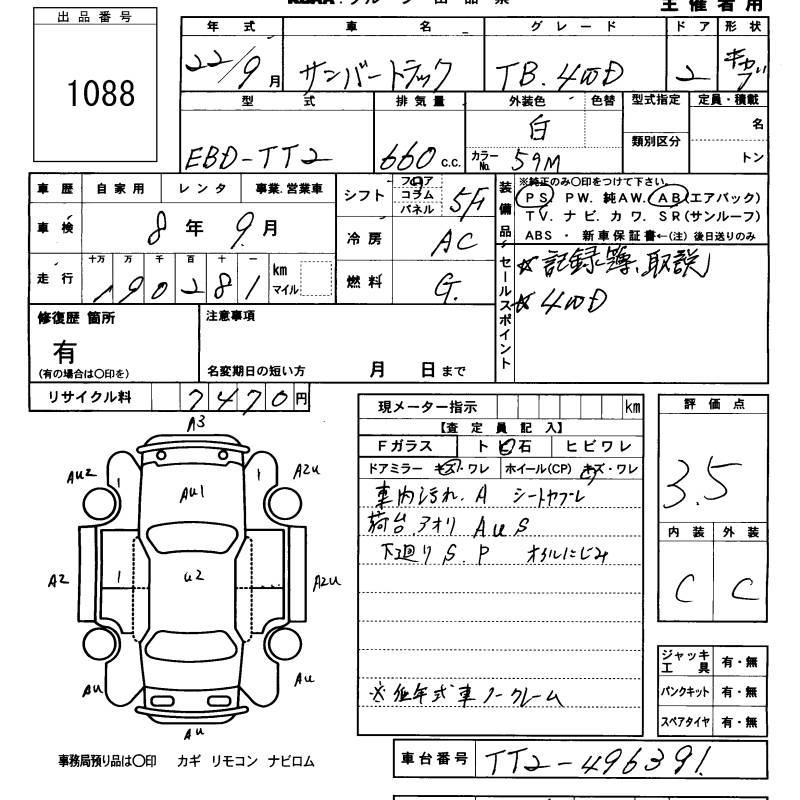 出品番号
1088
主催者用
年式 車名 グレード ドア 形状
22/9月 サンバートラック TB.4WD 2 キャブ
型式 排気量 外装色 色替 型式指定 定員・積載
EBD-TT2 660c.c. 白 類別区分 名
カラーNo. 59M トン
車歴 自家用 レンタ 事業.営業車
車検 8年9月
走行 十万 万 千 百 十 一
190281 km マイル
シフト フロア コラム パネル 5F
冷房 AC
燃料 G.
装備品 ※純正のみ○印をつけて下さい。
PS PW. 純AW. AB(エアバック)
TV. ナビ. カワ. SR(サンルーフ)
ABS ・ 新車保証書←(注) 後日送りのみ
セールスポイント ☆記録簿、取説
☆4WD
修復歴 箇所
有
(有の場合は○印を)
注意事項
名変期日の短い方 月 日まで
リサイクル料 7470円
現メーター指示 km
【査定員記入】
Fガラス ト ビ 石 ヒビワレ
ドアミラー キズ・ワレ ホイール(CP) キズ・ワレ
車内汚れ.A シートヤブレ
荷台.アオリ AUS
下廻りS.P オイルにじみ
※低年式車ノークレーム
評価点
3.5
内装 外装
C C
A3
AU2 1 AU1 1 A2U
A2 1 U2 A2U
AU AU
AU
ジャッキ工具 有・無
パンクキット 有・無
スペアタイヤ 有・無
事務局預り品は○印 カギ リモコン ナビロム
車台番号 TT2-496391